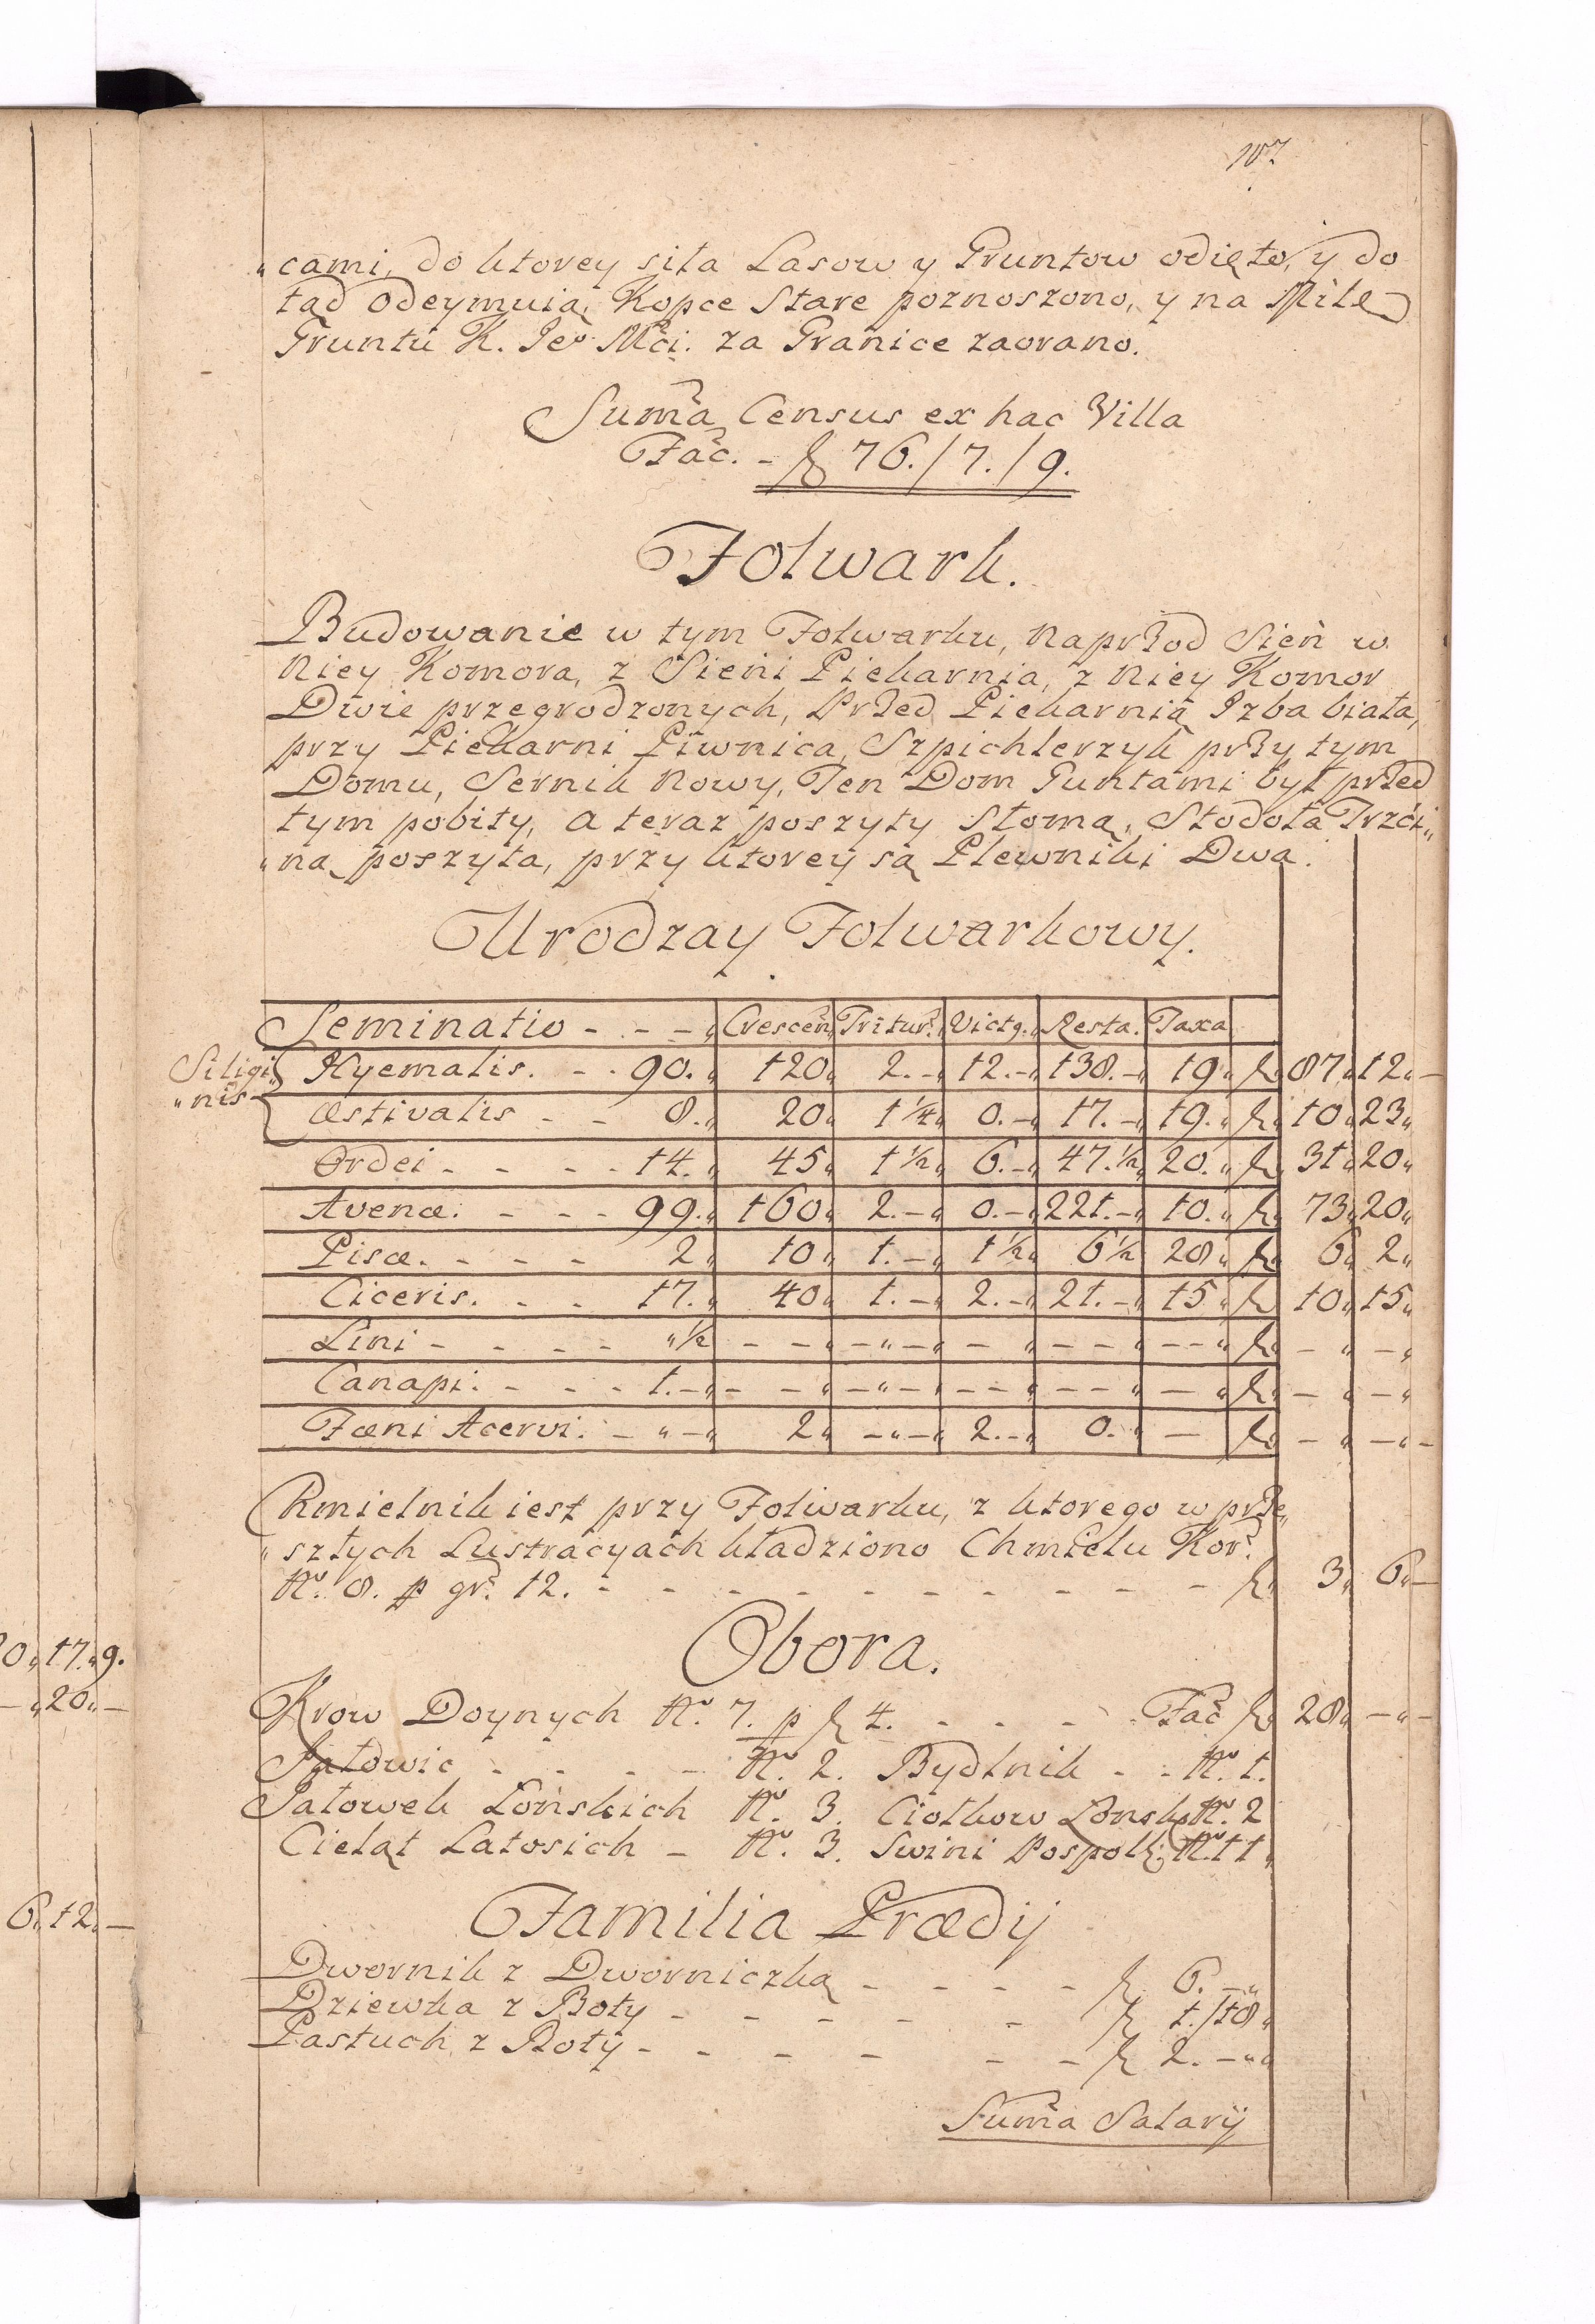 107.
„cami, do ktorey siła Lasow y Gruntow odięto, y do
tąd odeymuią, Kopce Stare poznoszono, y na Milę
Gruntu K. Jeo Mći. za Granice zaorano.
Suma Census ex hac Villa
Fac. - f 76./7./9.
Folwark.
Budowanie w tym Folwarku, naprzod Sień w
niey Komora, z Sieni Piekarnia, z niey Komor
Dwie przegrodzonych, Przed Piekarnią Izba biała,
przy Piekarni Piwnica, Szpichlerzyk przy tym
Domu, Sernik nowy, Ten Dom Guntami był przed
tym pobity, a teraz poszyty Słomą, Stodoła Trzci„
„ną poszyta, przy ktorey są Plewniki Dwa.
Urodzay Folwarkowy.
Seminatio - - - Crescen Tritur. Victg. Resta. Taxa
Siligi„ Hyemalis. - - 90. 120 2.- 12.- 138.- 19 f 87 12 -
„nis æstivalis - - 8. 20 1¼ 0.- 17.- 19. f 10 23
Ordei - - - - 14. 45 1½ 6.- 47.½ 20. f 31 20
Avenæ. - - - 99. 160 2.- 0.- 221.- 10. f 73 20
Pisæ. - - - 2 10 1.- 1½ 6½ 28 f 6 2
Ciceris. - - 17. 40 1.- 2.- 21.- 15 f 10 15
Lini - - - - „½ - - - „ - - - - - - f - -
Canapi. - - - 1. - - - - „ - - - - - - f - -
Fœni Acervi. - „ - 2 - „ - 2.- 0. - f - - -
Kmielnik iest przy Folwarku, z ktorego w prze„
„szłych Lustracyach kładziono Chmielu Kor.
No. 8. p gr. 12. - - - - - - - - - - f 3 6 -
Obora.
Krow Doynych No. 7. p f 4. - - - Fac f 28 - -
Jałowic - - - - No. 2. Bydlnik - - No. 1.
Jałowek Łońskich No. 3. Ciołkow Łonsk No. 2
Cieląt Latosich - No. 3. Swini Pospol. No. 11
Familia Prædij
Dwornik z Dworniczką - - - - f 6. -
Dziewka z Boty - - - - - f 1./18
Pastuch z Boty - - - - - - f 2. -
Suma Salarij
0 17. 9.
- 20 -
6. 12. -